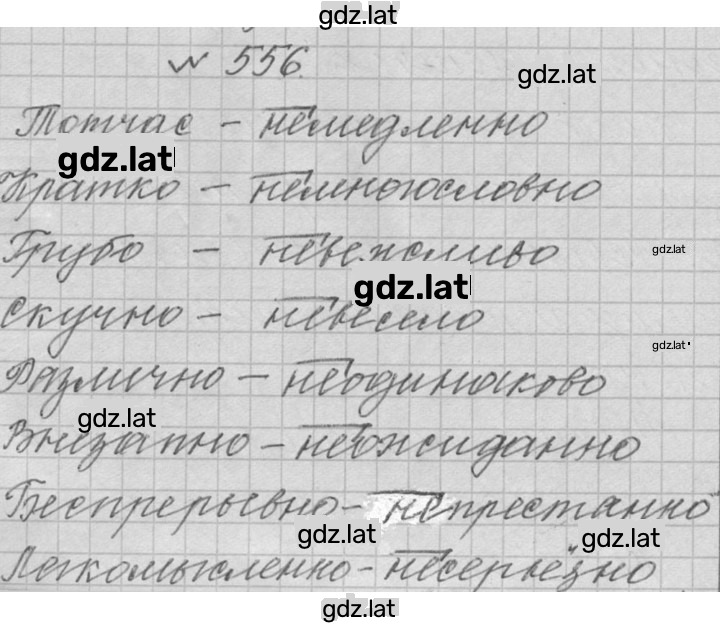 gdz.lat
№ 556.
gdz.lat
Тотчас – немедленно
gdz.lat
Кратко – немногословно
Грубо – невежливо
gdz.lat
gdz.lat
Скучно – невесело
gdz.lat
Различно – неодинаково
gdz.lat
Внезапно – неожиданно
Беспрерывно – непрестанно
gdz.lat
gdz.lat
Легкомысленно – несерьёзно
gdz.lat